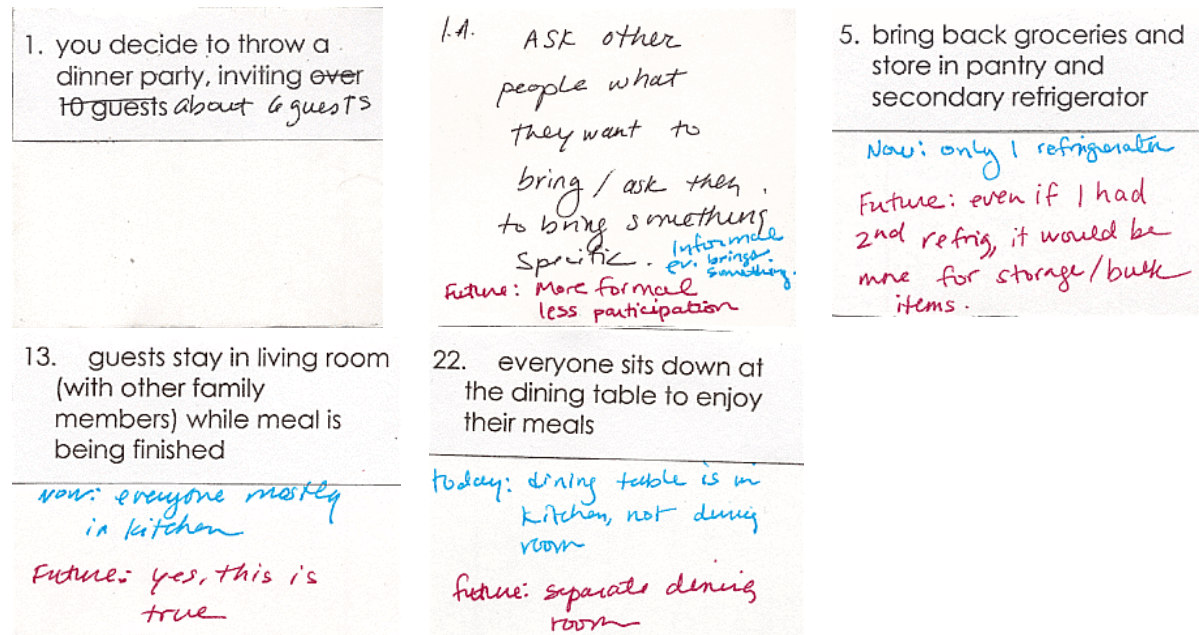 1. you decide to throw a
dinner party, inviting over
10 guests about 6 guests
1.A. ASK other
people what
they want to
bring / ask then
to bring something
specific.
Informal
ev. brings
something.
Future: More formal
less participation
5. bring back groceries and
store in pantry and
secondary refrigerator
Now: only 1 refrigerator
Future: even if I had
2nd refrig, it would be
more for storage/bulk
items.
13. guests stay in living room
(with other family
members) while meal is
being finished
Now: everyone mostly
in kitchen
Future: yes, this is
true
22. everyone sits down at
the dining table to enjoy
their meals
today: dining table is in
kitchen, not dining
room
future: separate dining
room